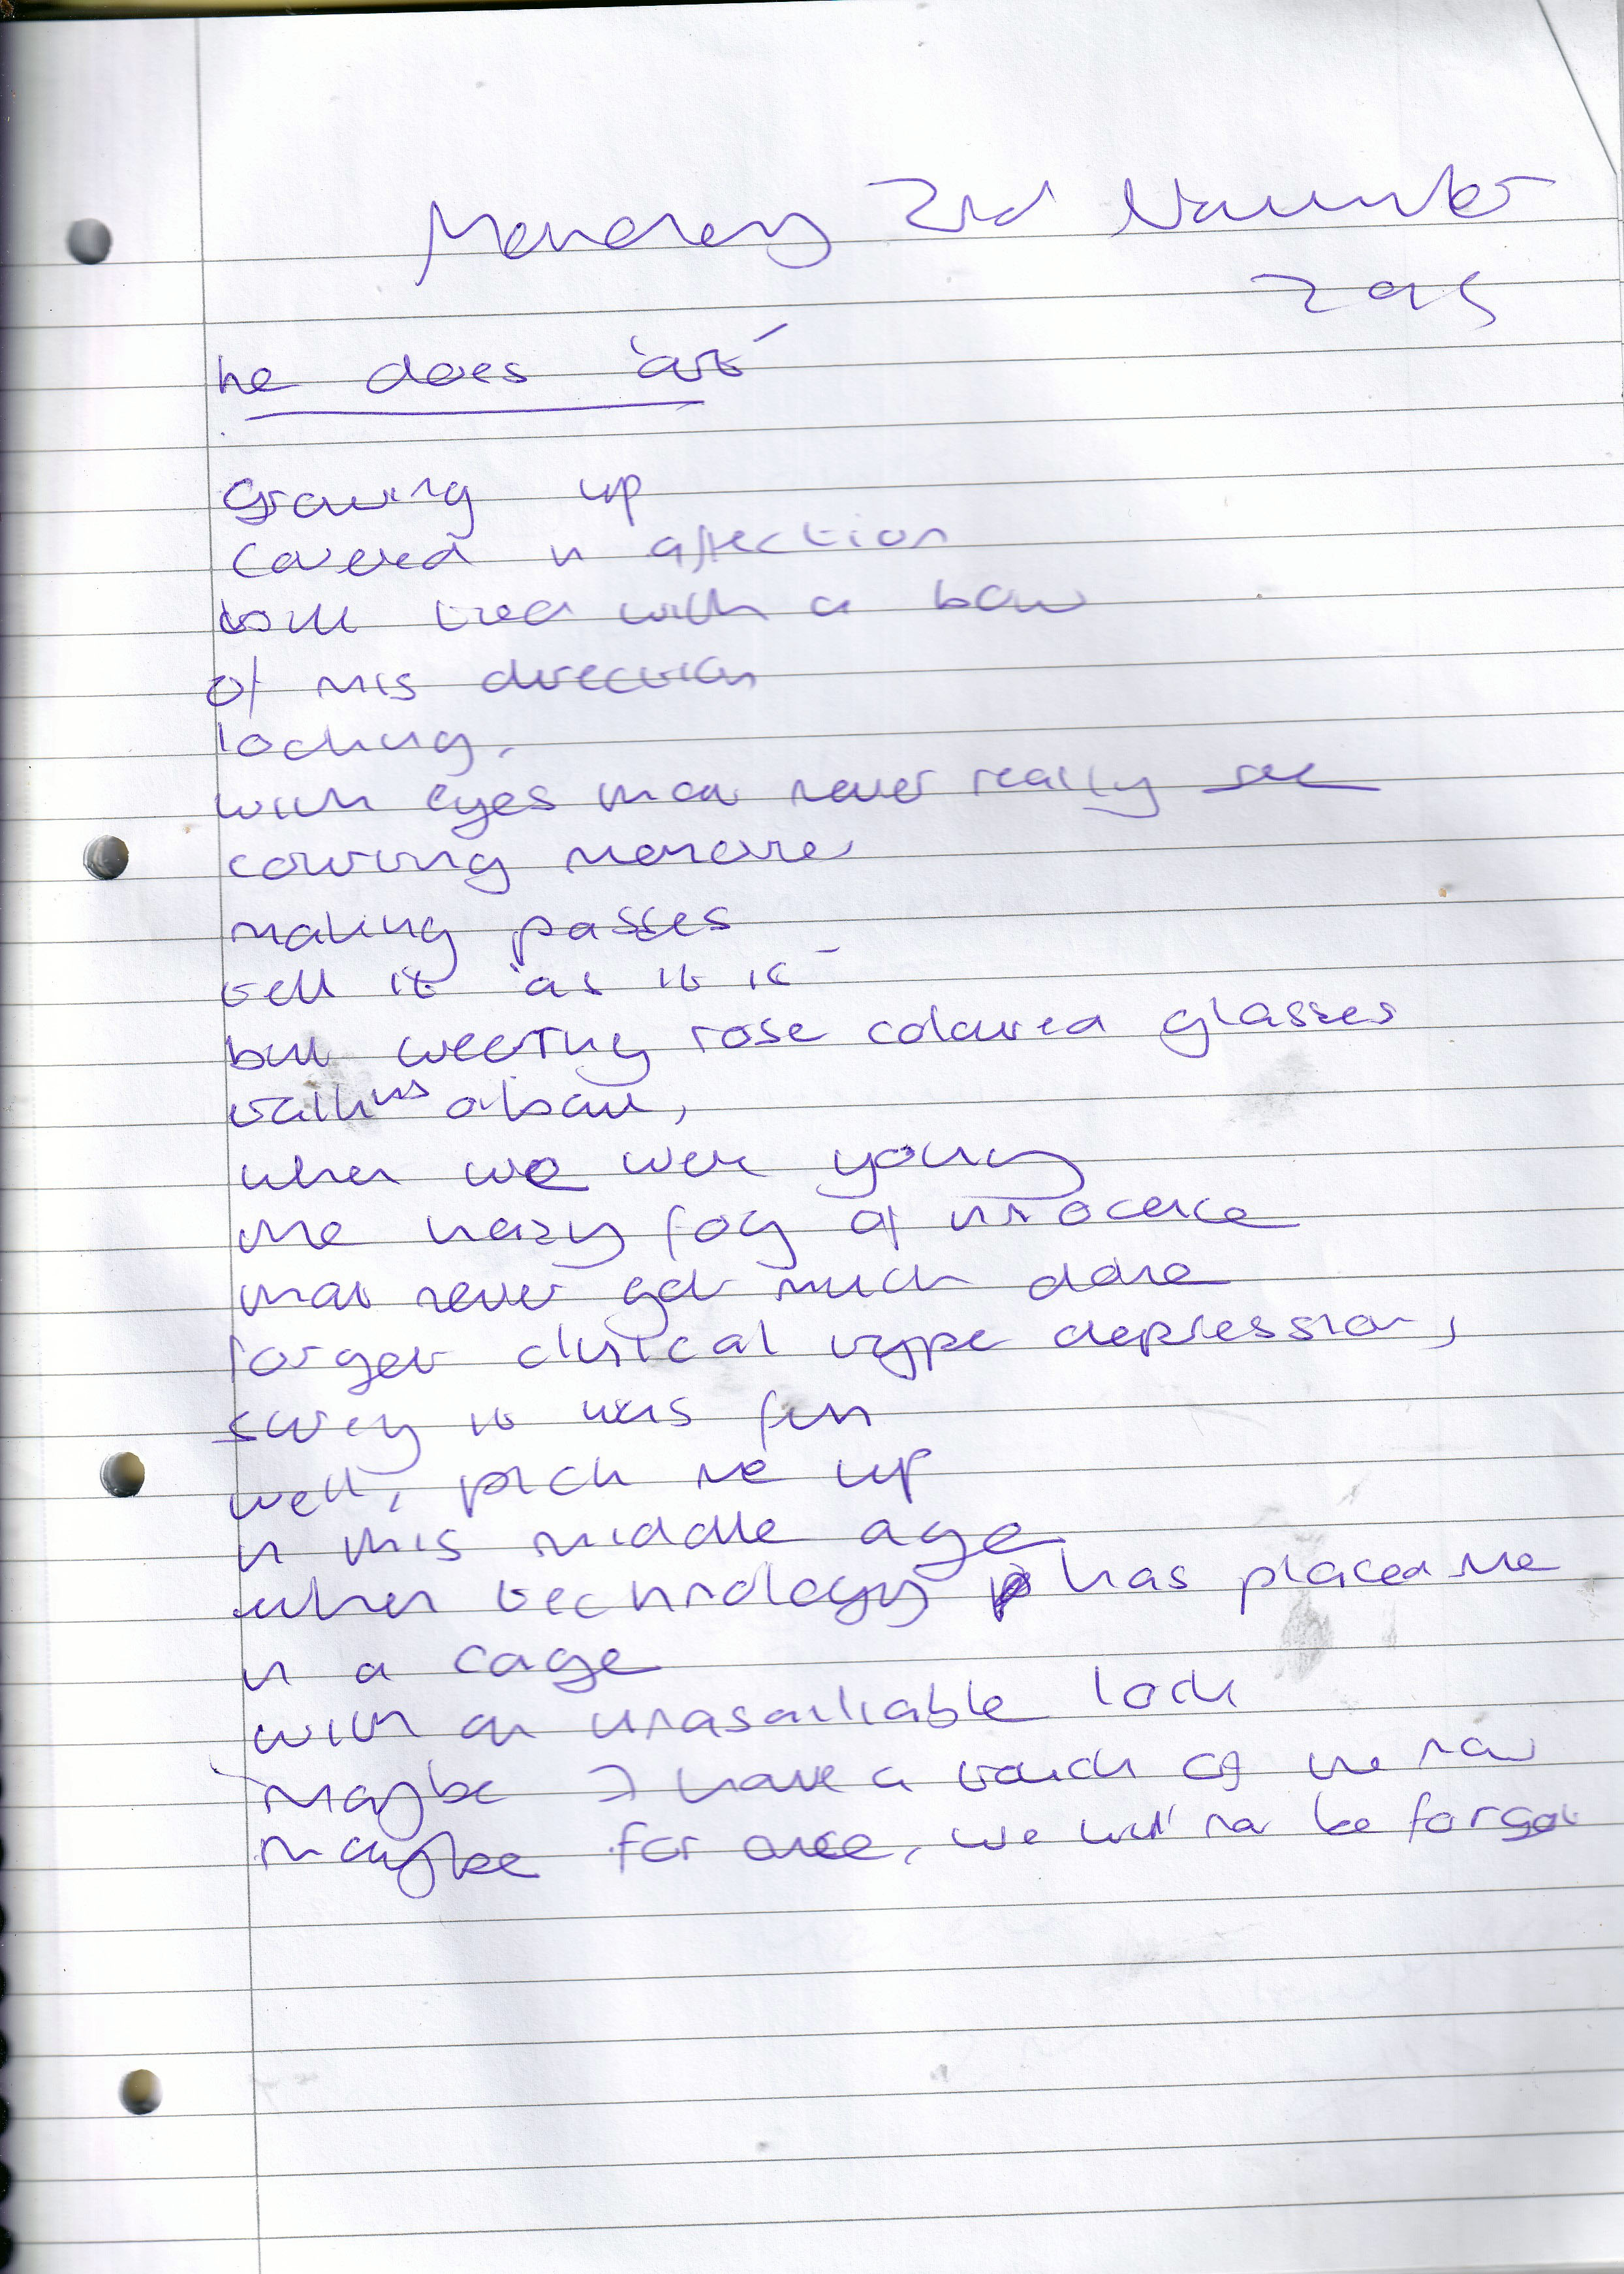 Monday 2nd November
2015
he does 'art'
Growing up
covered in affection
but tied with a bow
of misdirection
looking,
with eyes that never really see
making passes
tell it 'as it is'
but wearing rose coloured glasses
talking about,
when we were young
the hazy fog of inocence
that never got much done
forget clinical type depression,
surely it was fun
well, pick me up
in this middle age
when technology has placed me
in a cage
with an unasailiable lock
maybe I have a touch of the
maybe for once, we will not be forgot